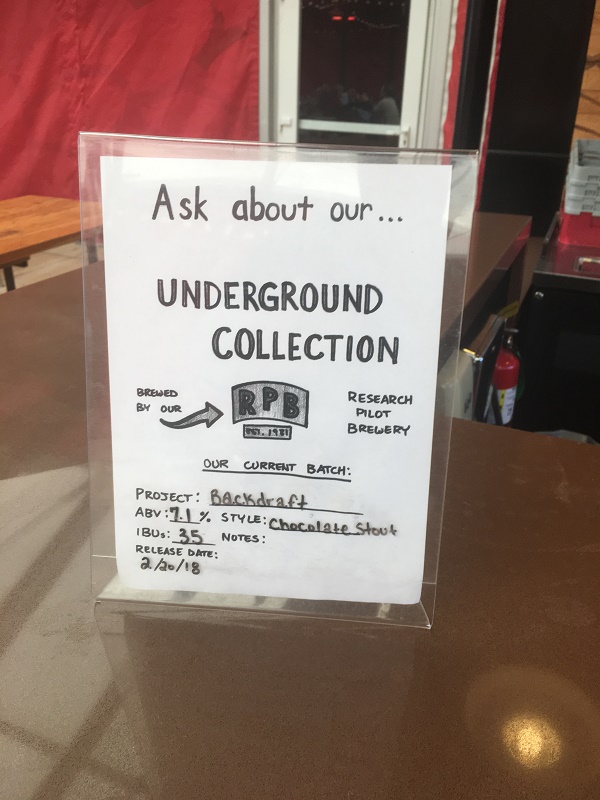 Ask about our...
UNDERGROUND
COLLECTION
BREWED
BY OUR
RPB
EST. 1981
RESEARCH
PILOT
BREWERY
OUR CURRENT BATCH:
PROJECT: BACkdraft
ABV: 7.1 % STYLE: Chocolate Stout
IBUs: 35 NOTES:
RELEASE DATE:
2/20/18